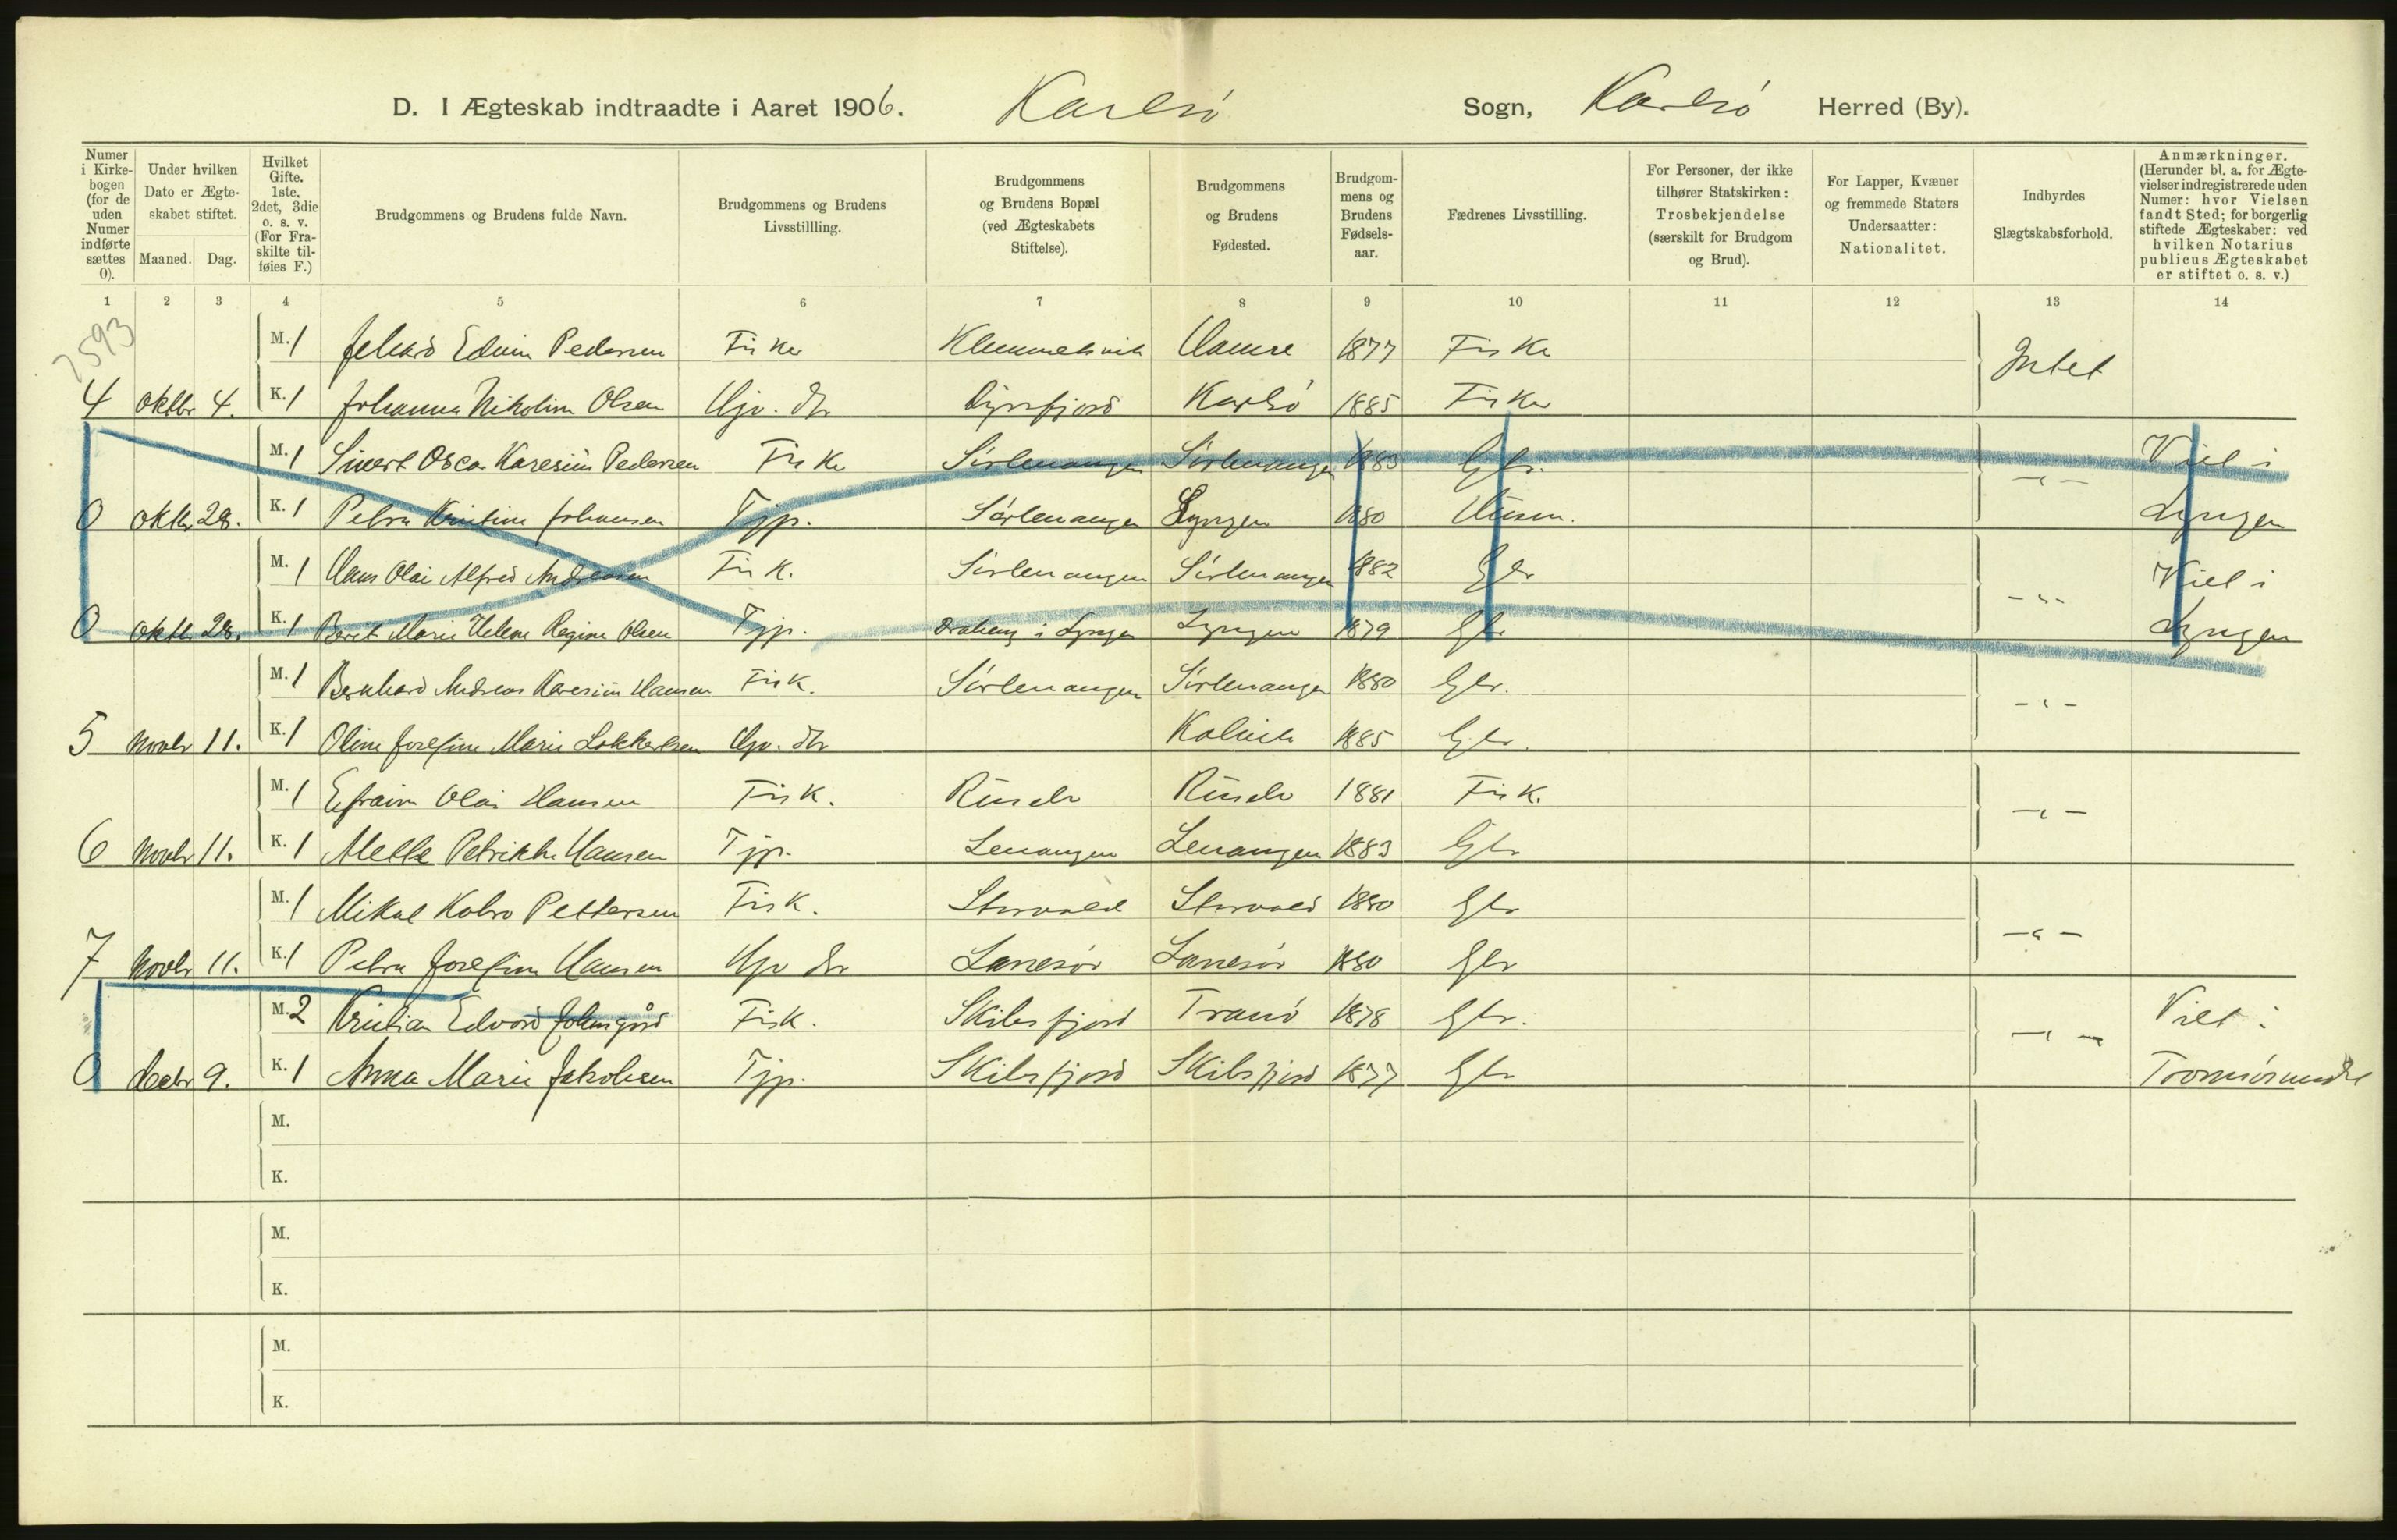 D. I Ægteskab indtraadte i Aaret 1906. Karlsö Sogn, Karlsö Herred (By).
Numer i Kirkebogen (for de uden Numer indførte sættes 0).
Under hvilken Dato er Ægteskabet stiftet.
Maaned. Dag.
Hvilket Gifte. 1ste, 2det, 3die o. s. v. (For Fraskilte tilføies F.)
Brudgommens og Brudens fulde Navn.
Brudgommens og Brudens Livsstillling.
Brudgommens og Brudens Bopæl (ved Ægteskabets Stiftelse).
Brudgommens og Brudens Fødested.
Brudgommens og Brudens Fødselsaar.
Fædrenes Livsstilling.
For Personer, der ikke tilhører Statskirken: Trosbekjendelse (særskilt for Brudgom og Brud).
For Lapper, Kvæner og fremmede Staters Undersaatter: Nationalitet.
Indbyrdes Slægtskabsforhold.
Anmærkninger. (Herunder bl. a. for Ægtevielser indregistrerede uden Numer: hvor Vielsen fandt Sted; for borgerlig stiftede Ægteskaber: ved hvilken Notarius publicus Ægteskabet er stiftet o. s. v.)
1 2 3 4 5 6 7 8 9 10 11 12 13 14
2593
M. 1 Edvin Pedersen Fisker 1877 Fisker Intet
4 Oktbr 4. K. 1 Johanna Nikoline Olsen Karlsö 1885 Fisker
M. 1 Sivert Oscar Karesius Pedersen Fisker Sörlenangen Sörlenangen 1883 Gbr. -"- Viet i
0 Oktbr 28. K. 1 Petra Kristine Johansen Tjp. Sörlenangen Lyngen 1880 Lyngen
M. 1 Hans Olai Alfred Andreasen Fisk. Sörlenangen Sörlenangen 1882 Gbr -"- Viet i
0 Oktbr 28. K. 1 Berit Marie Helene Regine Olsen Tjp. i Lyngen Lyngen 1879 Gbr Lyngen
M. 1 Bernhard Andreas Karesius Hansen Fisk. Sörlenangen Sörlenangen 1880 Gbr. -"-
5 Novbr 11. K. 1 Oline Josefine Marie 1885 Gbr.
M. 1 Efraim Olai Hansen Fisk. 1881 Fisk. -"-
6 Novbr 11. K. 1 Mette Petrikke Hansen Tjp. Lenangen Lenangen 1883 Gbr
M. 1 Mikal Pettersen Fisk. 1880 Gbr -"-
7 Novbr 11. K. 1 Petra Josefine Hansen 1880 Gbr
M. 2 Kristian Edvard Fisk. Skibsfjord Tranö 1878 Gbr. -"- Viet i
0 Decbr 9. K. 1 Anna Marie Jakobsen Tjp. Skibsfjord Skibsfjord 1877 Gbr Tromsösundet
M.
K.
M.
K.
M.
K.